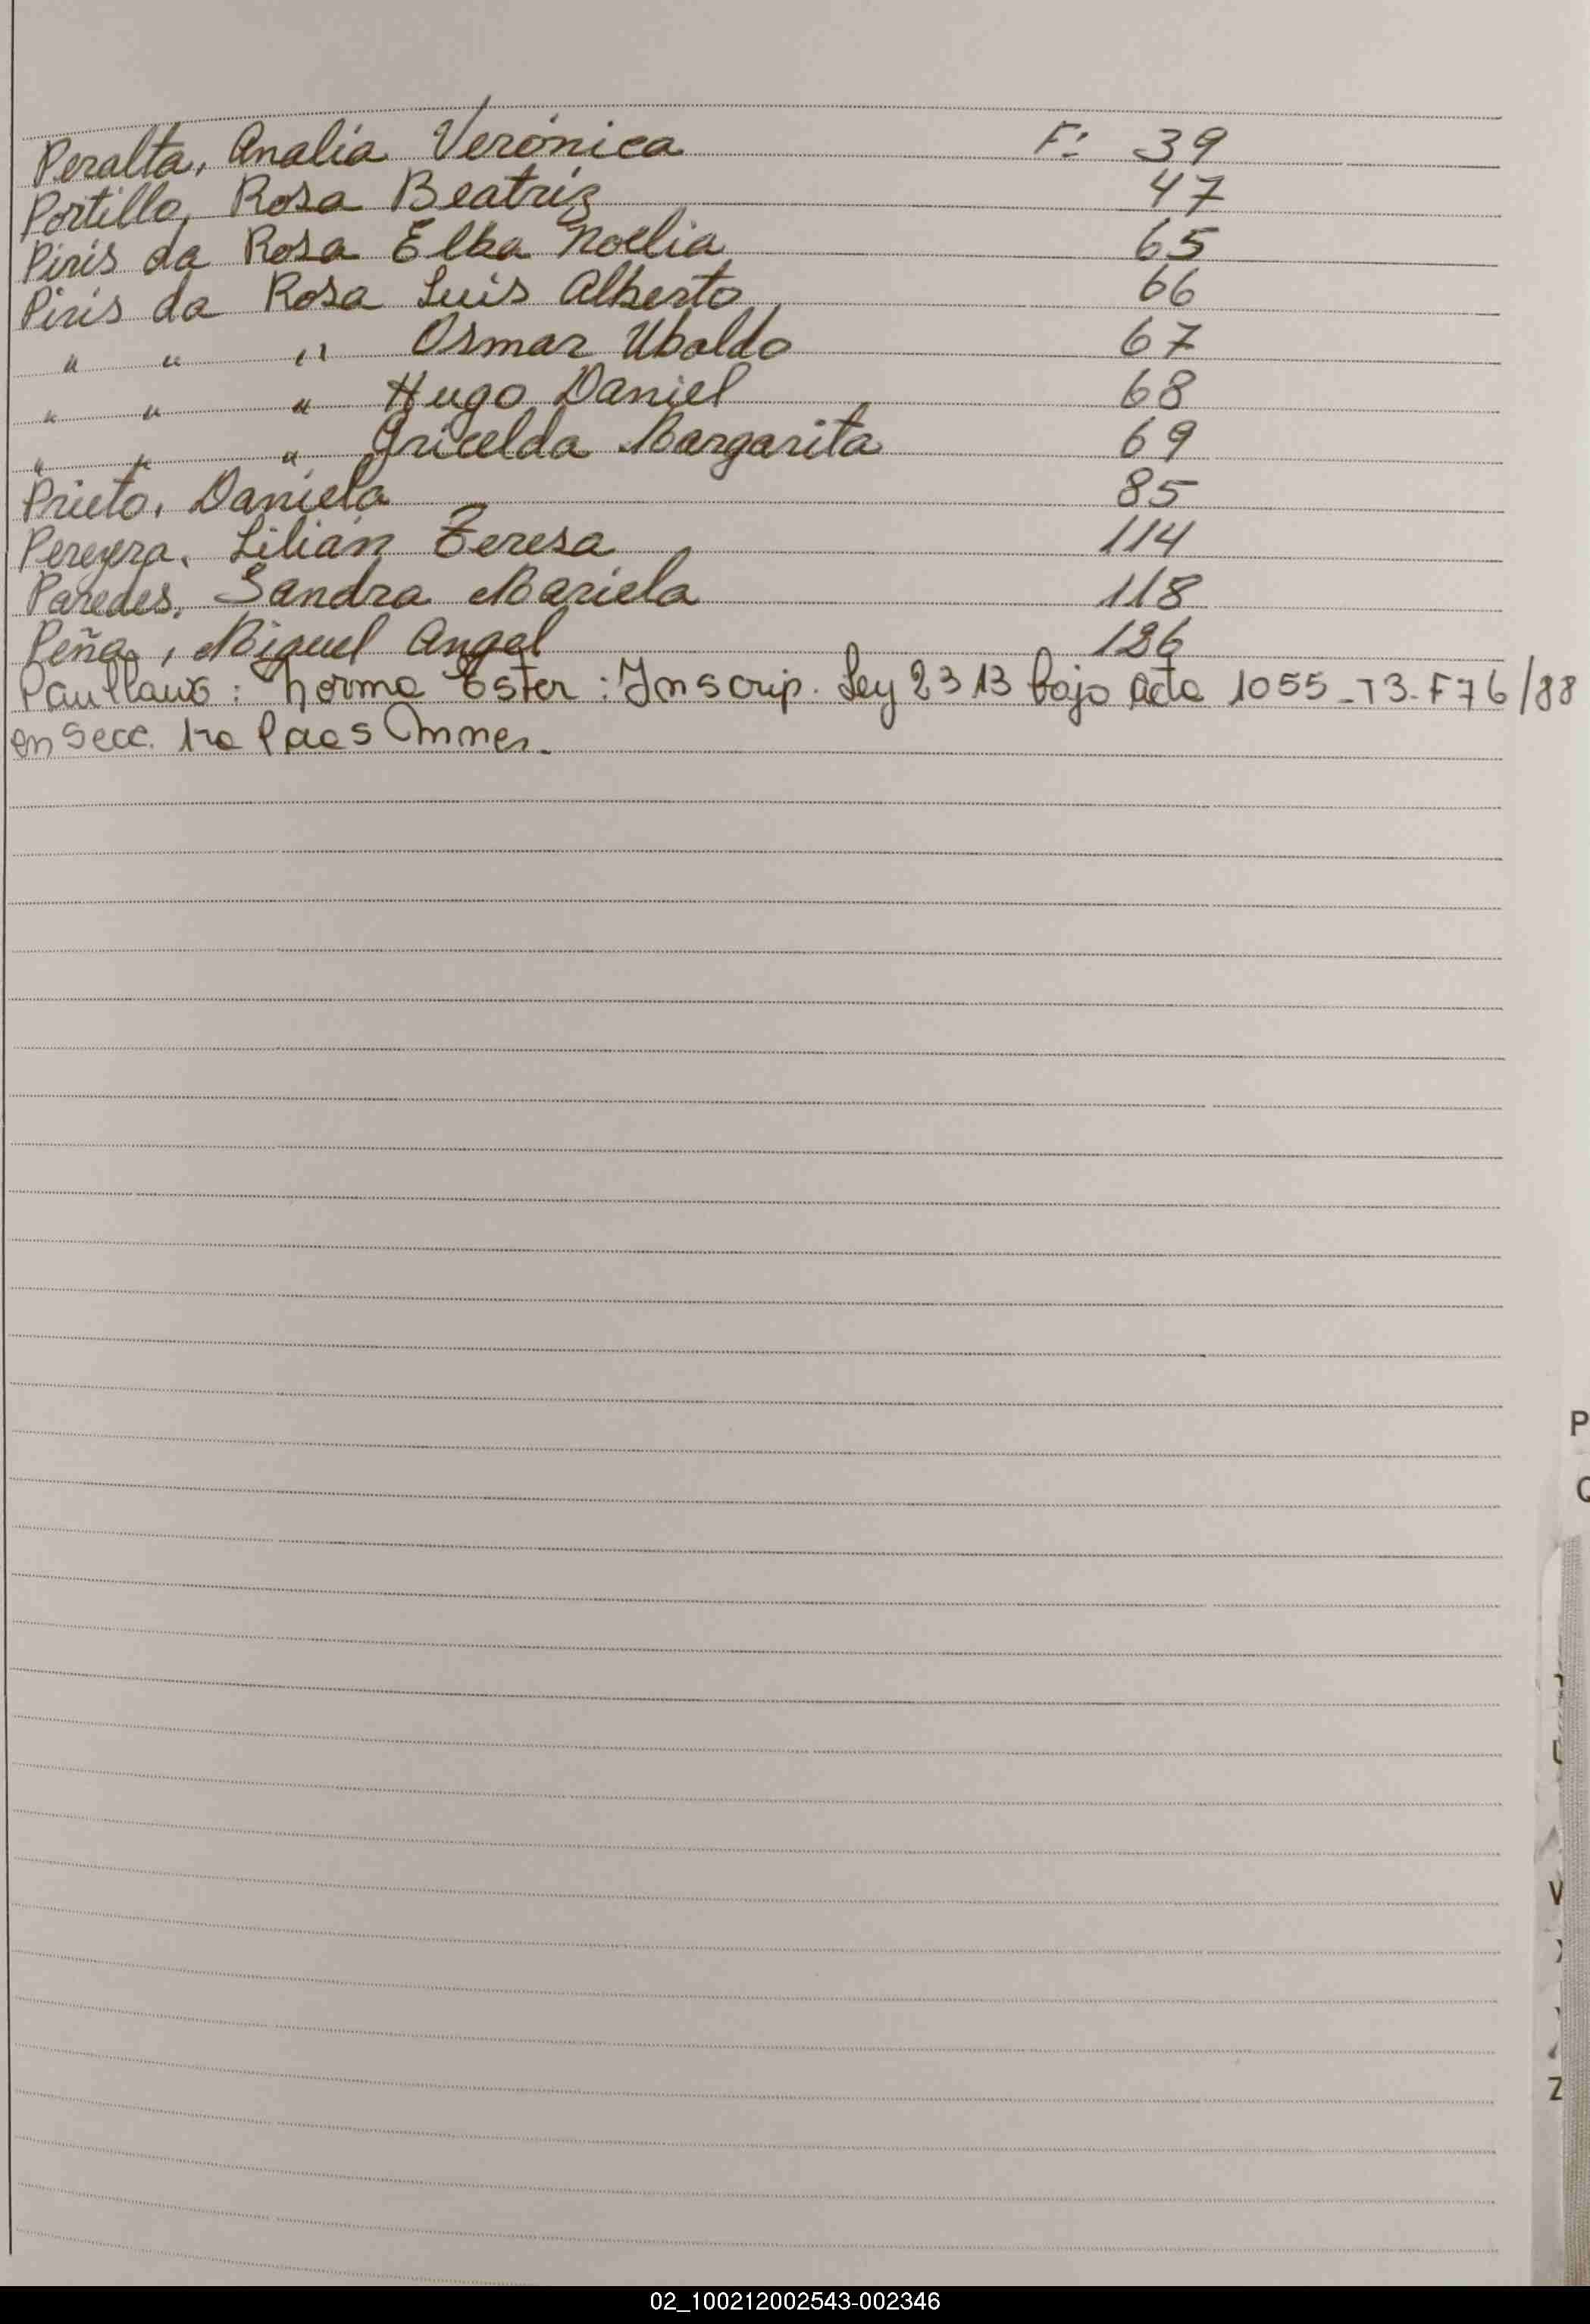 Peralta, Analía Verónica F: 39
Portillo, Rosa Beatriz 47
Piris da Rosa Elba Noelia 65
Piris da Rosa Luis Alberto 66
" " " Osmar Ubaldo 67
" " " Hugo Daniel 68
" " " Gricelda Margarita 69
Prieto, Daniela 85
Pereyra, Lilian Teresa 114
Paredes, Sandra Mariela 118
Peña, Miguel Angel 126
: Norma Ester: Inscrip. Ley 2313 bajo acta 1055-T3-F76/88
en Secc. 1ra
P
Q
U
V
Z
02_100212002543-002346